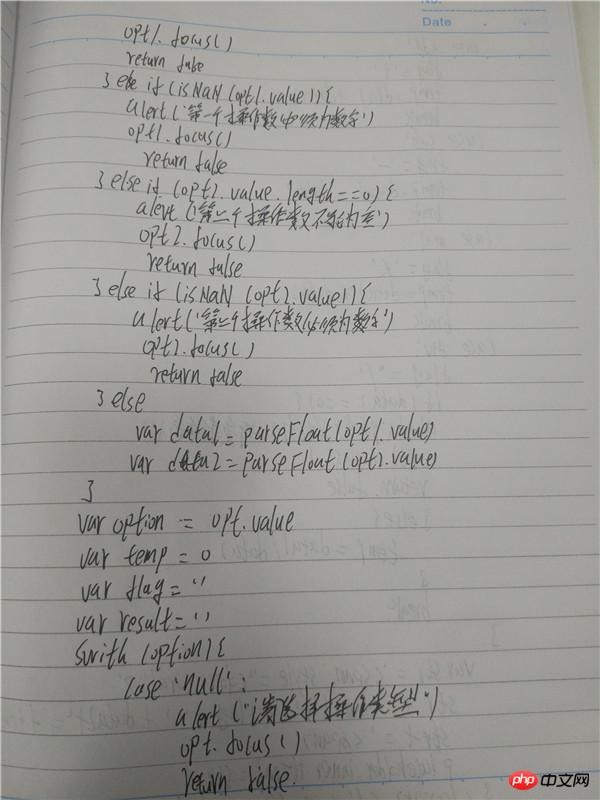 No.
Date
opt1.focus()
return false
}else if (isNaN(opt1.value)){
alert('第一个操作数必须为数字')
opt1.focus()
return false
}else if (opt2.value.length==0){
alert('第二个操作数不能为空')
opt2.focus()
return false
}else if (isNaN(opt2.value)){
alert('第二个操作数必须为数字')
opt2.focus()
return false
}else
var data1=parseFloat(opt1.value)
var data2=parseFloat(opt2.value)
}
var option = opt.value
var temp = 0
var flag=''
var result=''
switch (option){
case 'null':
alert("请选择操作类型")
opt.focus()
return false
php 中文网